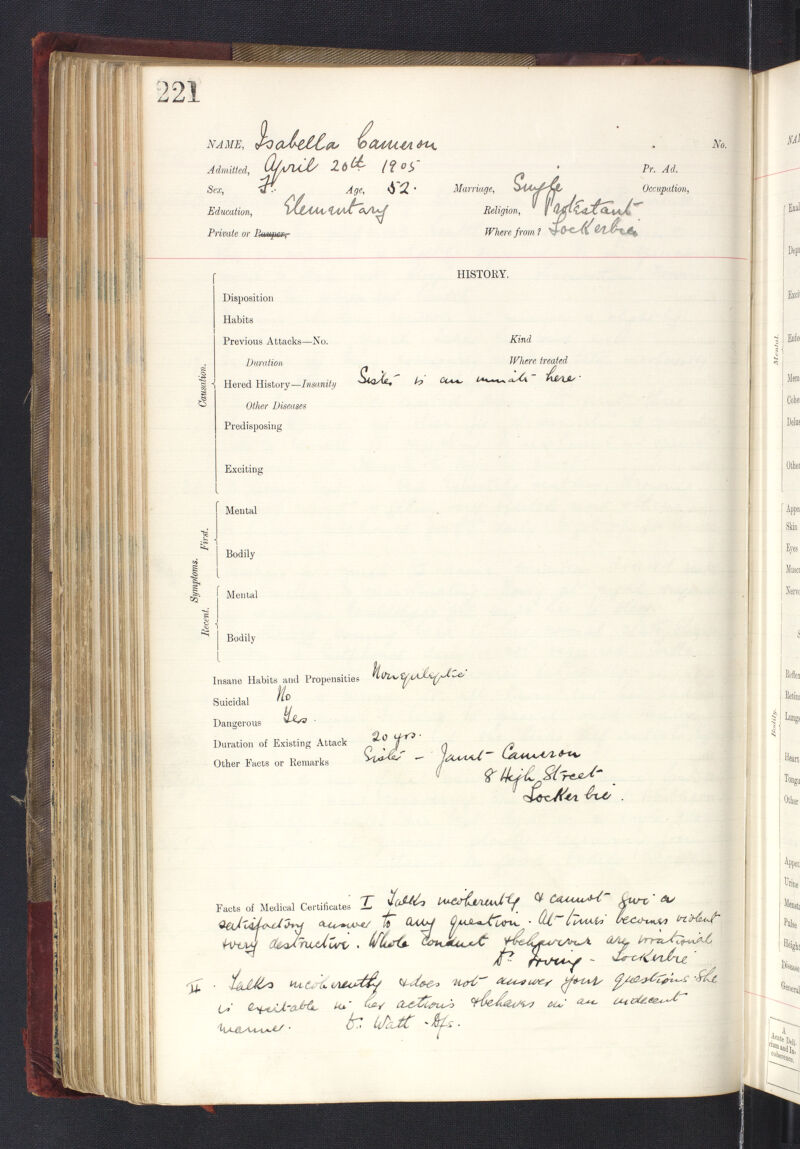 221
NAME, Isabella Cameron No.
Admitted, April 20th 1905 Pr. Ad.
Sex, F. Age, 52. Marriage, Single Occupation,
Education, Elementary Religion, Protestant
Private or Pauper, Where from? Lockerbie
HISTORY.
Causation.
Disposition
Habits
Previous Attacks—No. Kind
Duration Where treated
Hered History—Insanity Sister is an inmate here.
Other Diseases
Predisposing
Exciting
Symptoms.
First.
Mental
Bodily
Recent.
Mental
Bodily
Insane Habits and Propensities Nonepileptic
Suicidal No
Dangerous Yes.
Duration of Existing Attack 20 yrs.
Other Facts or Remarks Sister - Janet Cameron
8 High Street
Lockerbie.
Facts of Medical Certificates I Talks incoherently & cannot give a
satisfactory answer to any question. At times becomes violent
& very destructive. Whole conduct & behaviour are irrational
Dr Irving - Lockerbie
II. Talks incoherently & does not answer your questions. She
is excitable in her actions & behaves in an indecent
manner. Dr. Watt - Dfs.
NA
Mental.
Exal
Dep
Exci
Enfe
Mem
Cohe
Delu
Other
Bodily.
Appe
Skin
Eyes
Musc
Nerv
S
Reflex
Retin
Lung
Heart
Tong
Other
Appet
Urine
Menst
Pulse
Height
Disease
General
A
Acute Deli-
rium and In-
coherence.